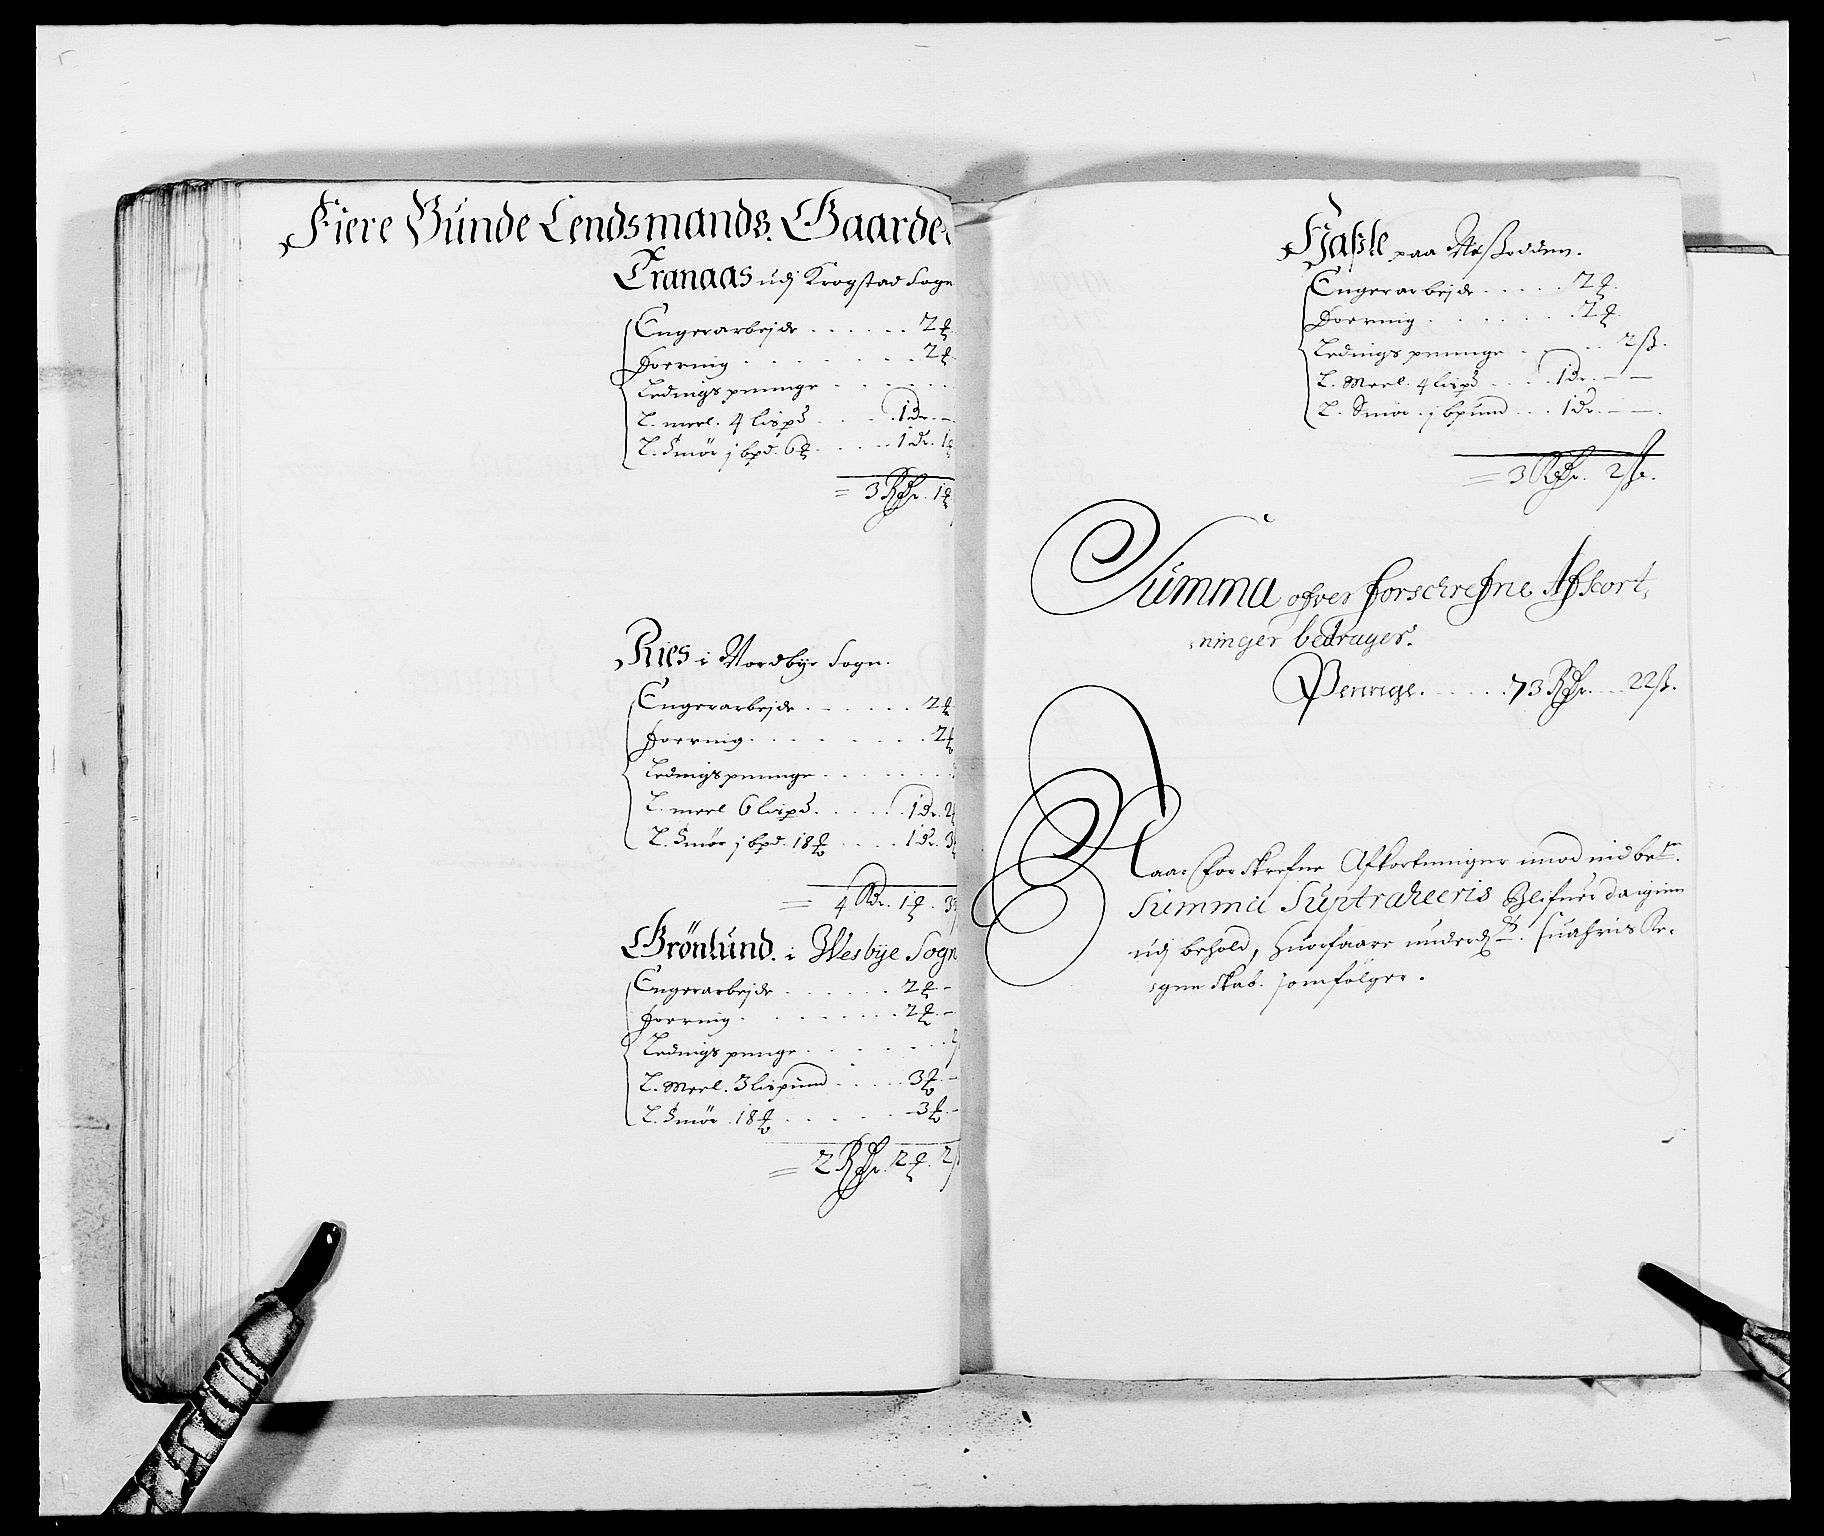 Fiere Bunde Lendsmands Gaarde
Tranaas udj Krogstad Sogn
Engerarbejde . . . . . . 2 ₰
Foering . . . . . . . . 2 ₰
Ledingspenninge . . . . . .
L. meel. 4 lispd . . . . 1 dr. —
L. Smør j bpd. 6 ₰ . . . . . 1 dr. 1
= 3 Rdr. 1
Ries i Nordbye Sogn.
Engerarbejde . . . . . . 2
Foering . . . . . . . . 2
Ledingspenninge . . . . . . .
L. meel 6 lispd. . . . . . 1 dr. 2
L. Smør j bpd. 18 . . . . 1 dr. 3
= 4 Rdr. 1 . 3
Grönlund. i Wesbye Sogn
Engerarbejde . . . . . . 2 —
Foering . . . . . . . . 2 —
Ledings penge . . . . . . .
L. Meel. 3 lispund . . . . . 3 —
L. Smør . 18 . . . . . . 3 —
= 2 Rdr. 2 . 2
Haßle paa Neßodden.
Engerarbejde . . . . . 2
Foering . . . . . . . . 2
Ledingspenninge . . . . . 2 ß.
L. Meel. 4 lispd . . . . 1 dr. — —
L. Smør . j bpund . . . 1 dr. — — .
= 3 Rdr. 2 ß.
Summa ofver forschrefne Afkort,
ninger bedrager.
Penninge. . . . . . 73 Rdr. . . . 22 ß.
Naar forskrefne Afkortninger imod indbe.
Summa Suptraheeris Blifuer da igien
udj behold, huorfaare underd. suahris Re-
gnskab. som følger.